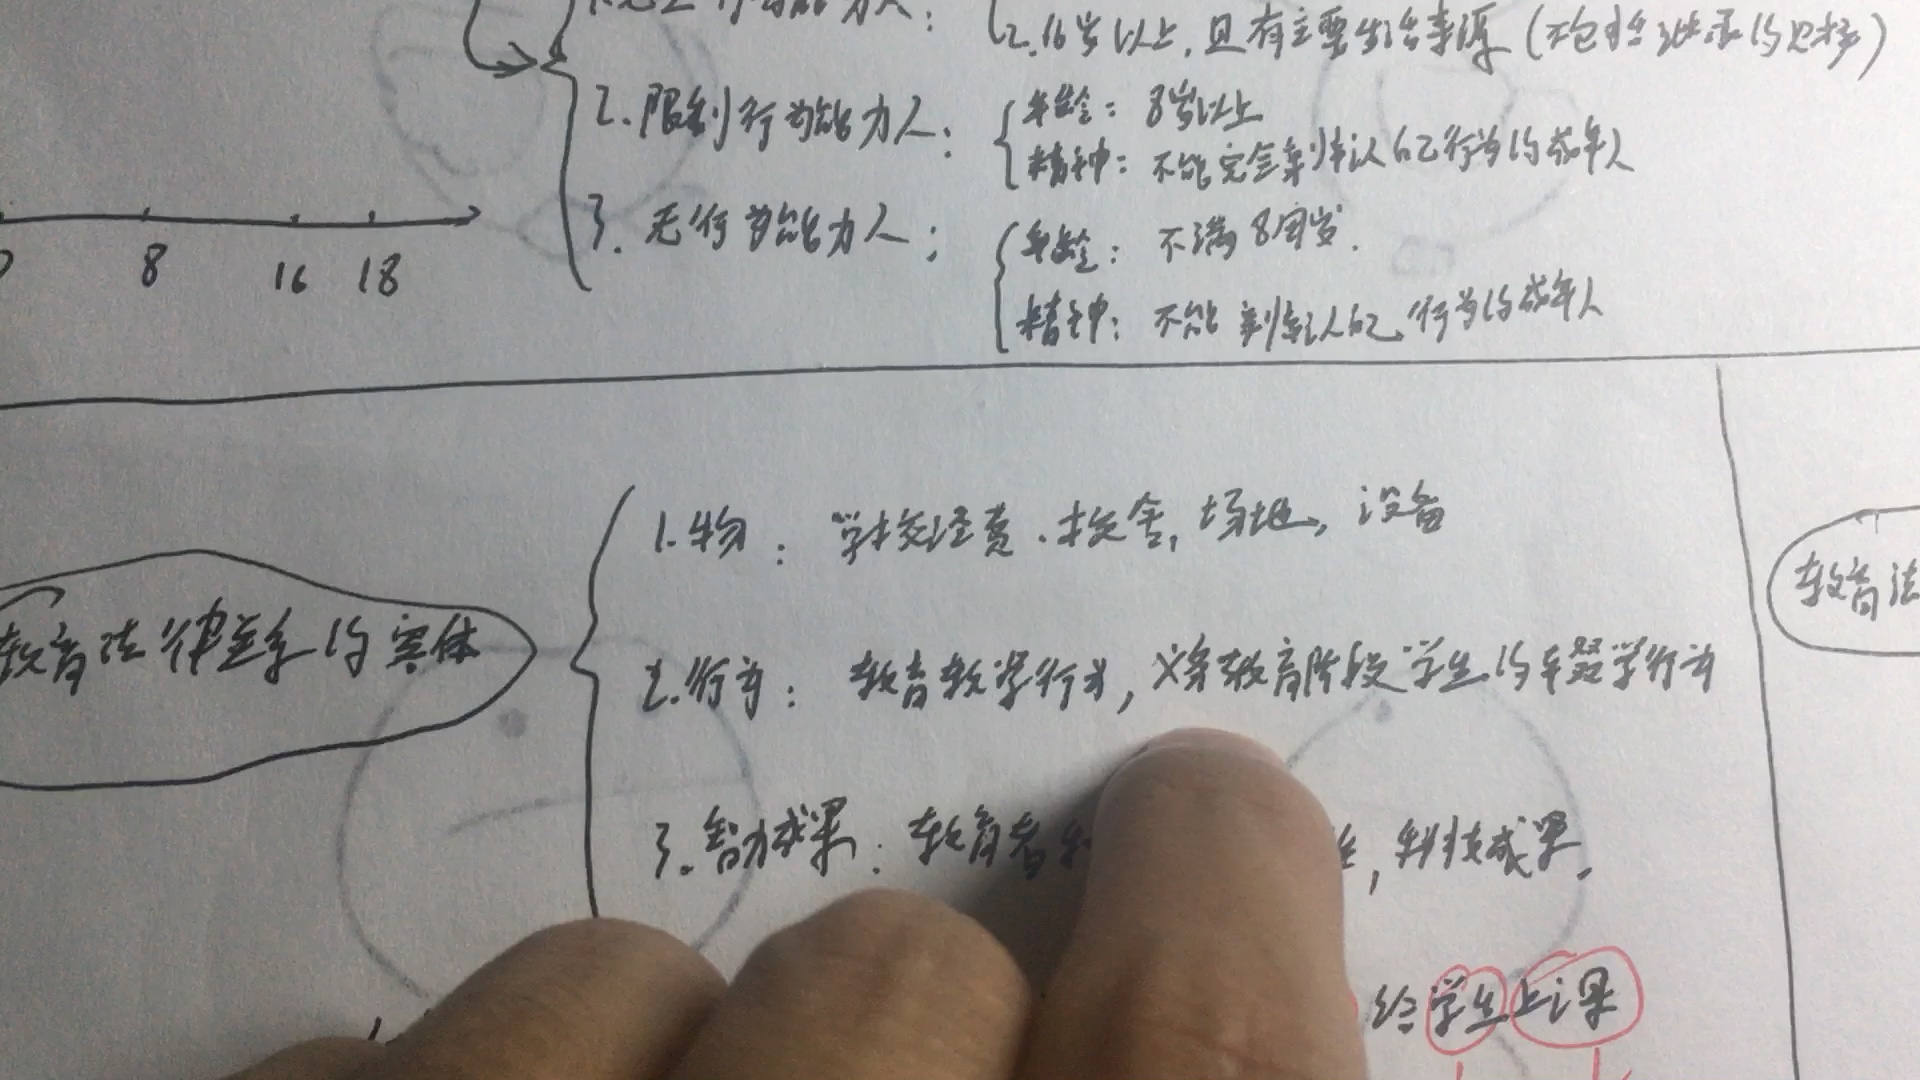 行为能力人：
2.16岁以上，且有主要生活来源（不包括继承的见移）
2.限制行为能力人：
年龄：8岁以上
精神：不能完全辨认自己行为的成年人
3.无行为能力人：
年龄：不满8周岁.
精神：不能辨认自己行为的成年人
8 16 18
教育法律关系的客体
1.物：学校经费.校舍,场地,设备
2.行为：教育教学行为,义务教育阶段学生的辍学行为
3.智力成果：教育者
,科技成果.
给学生上课
教育法